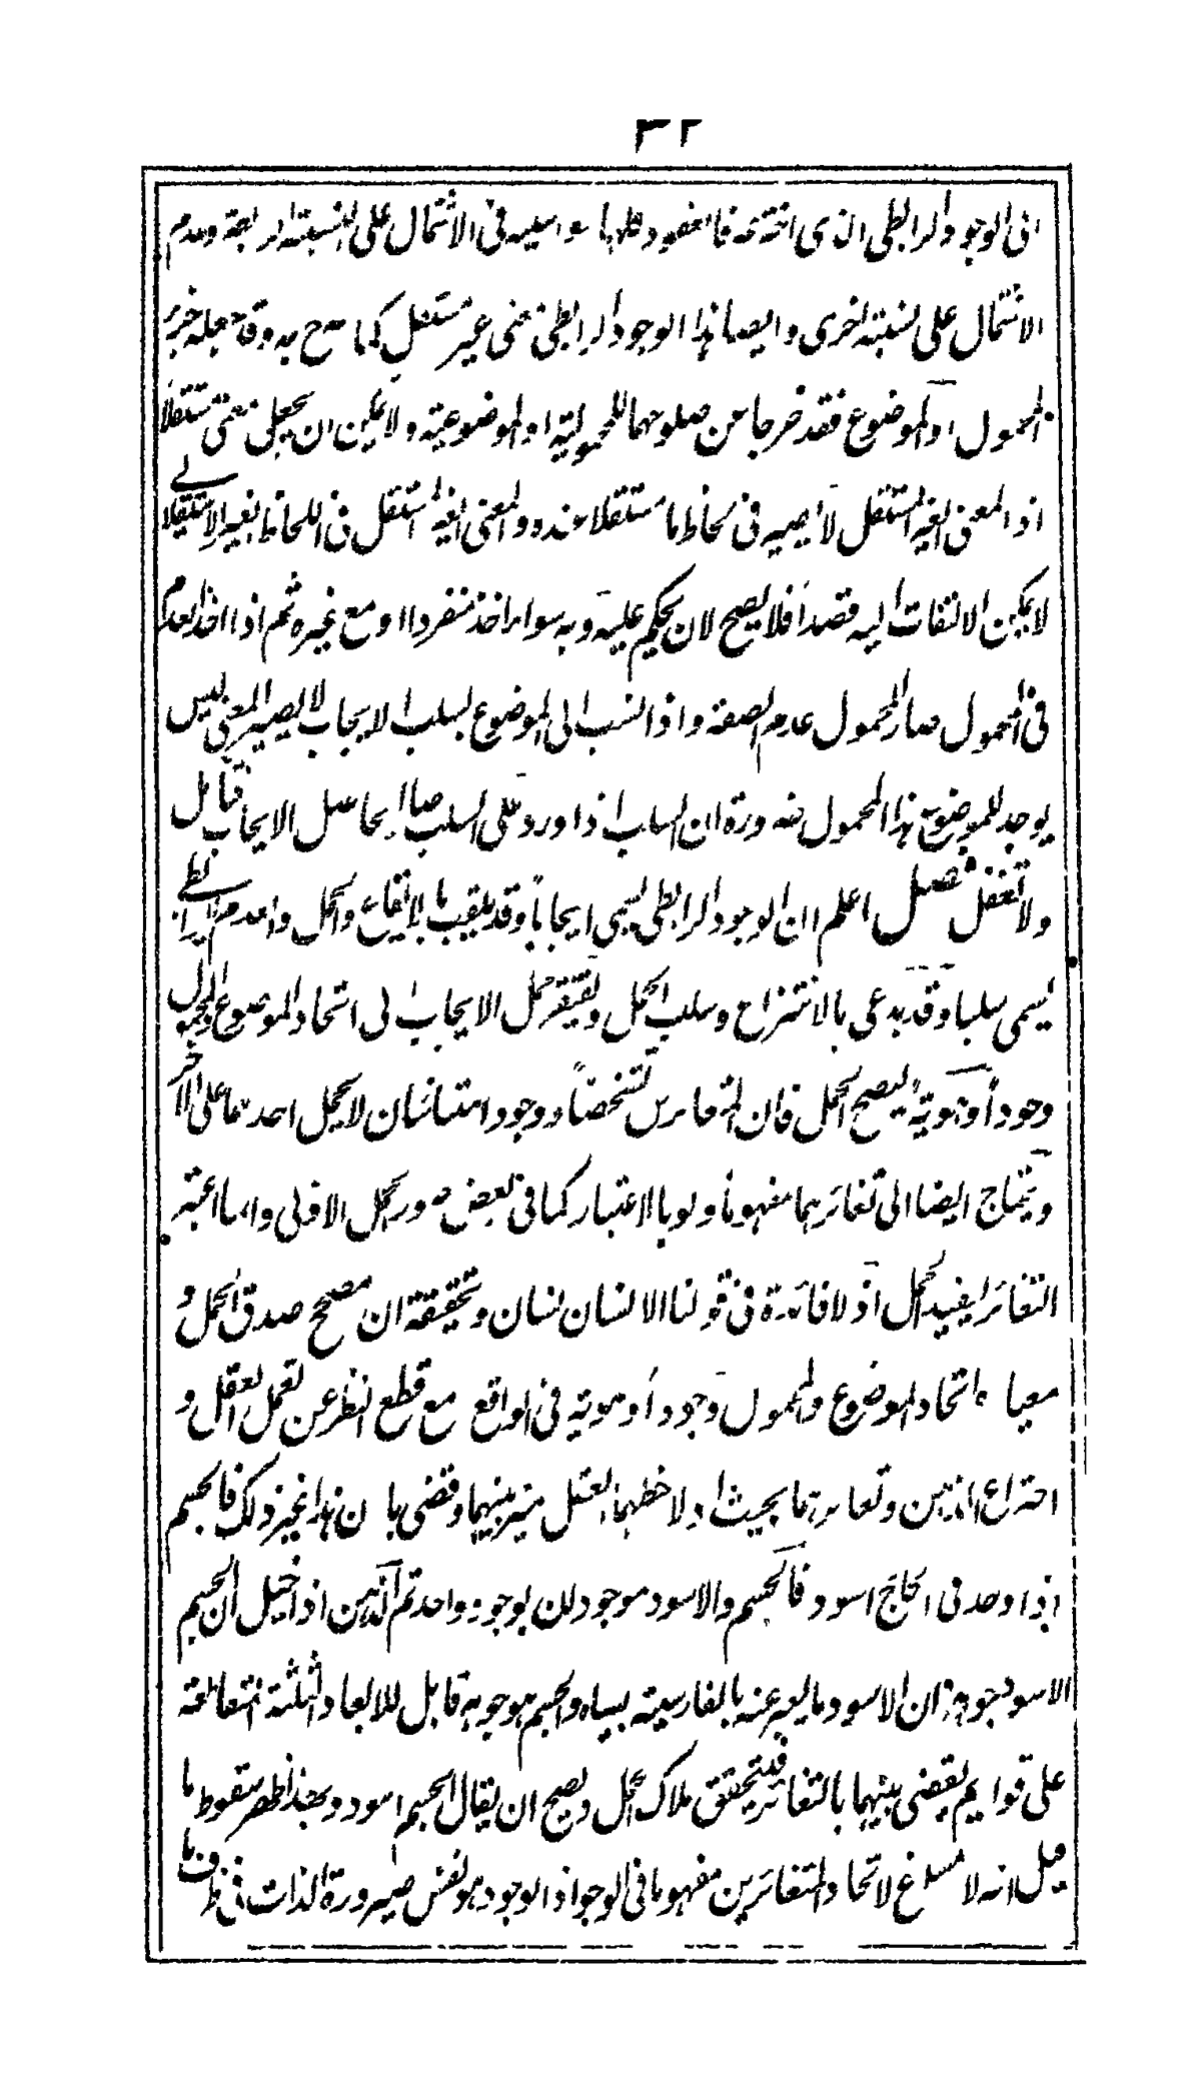 ٣٢
فى الوجود الرابطى الذى فالعقود كلها سواسية فى الاشتمال على النسبة الرابطة وعدم
الاشتمال على نسبة اخرى وايضا هذا الوجود الرابطى معنى غير مستقل كما صرح به وقد جعله جزء
المحمول او الموضوع فقد خرجا عن صلوحهما للمحمولية او الموضوعية ولا يمكن ان يجعل معنى مستقلا
اذ المعنى الغير المستقل لا يصير فى لحاظ ما مستقلا عنده والمعنى الغير المستقل فى اللحاظ الغير الاستقلالى
لا يمكن الالتفات اليه قصدا فلا يصح لان يحكم عليه وبه سواء اخذ منفردا او مع غيره ثم اذا اخذ العدم
فى المحمول صار المحمول عدم الصفة واذا انتسب الى الموضوع بسلب الايجاب لا يصير المعنى ليس
يوجد للموضوع هذا المحمول ضرورة ان السلب اذا ورد على السلب صار الحاصل الايجاب فتامل
ولا تغفل فصل اعلم ان الوجود الرابطى يسمى ايجابا وقد يلقب بالايقاع والحمل والعدم الرابطى
يسمى سلبا وقد يدعى بالانتزاع وسلب الحمل ويفتقر حمل الايجاب الى اتحاد الموضوع والمحمول
وجودا او هوية ليصح الحمل فان المتغايرين تشخصا ووجودا متباينان لا يحمل احدهما على الاخر
ويحتاج ايضا الى تغائرهما مفهوما ولو بالاعتبار كما فى بعض صور الحمل الاولى وانما اعتبر
التغائر ليفيد الحمل اذ لا فائدة فى قولنا الانسان انسان وتحقيقه ان مصحح صدق الحمل و
معياره اتحاد الموضوع والمحمول وجودا او هوية فى الواقع مع قطع النظر عن تعمل العقل و
اختراع الذهن وتغايرهما بحيث اذ لاحظهما العقل ميز بينهما وقضى بان هذا غير ذلك فالجسم
اذا وجد فى الخارج اسود فالجسم والاسود موجودان بوجود واحد ثم الذهن اذا خيل ان الجسم
الاسود جوهر ان الاسود ما يعبر عنه بالفارسية بسياه والجسم هو جوهر قابل للابعاد الثلثة المتقاطعة
على قوايم يقضى بينهما بالتغائر فيتحقق ملاك الحمل ويصح ان يقال الجسم اسود وبهذا ظهر سقوط ما
قيل انه لا مساغ لاتحاد المتغائرين مفهوما فى الوجود اذ الوجود هو نفس صيرورة الذات فى ظرف ما